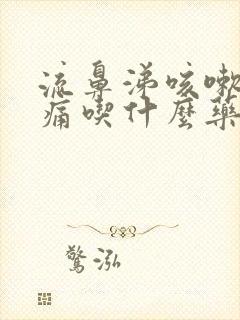 流鼻涕咳嗽
痛喫什麼藥
驚泓